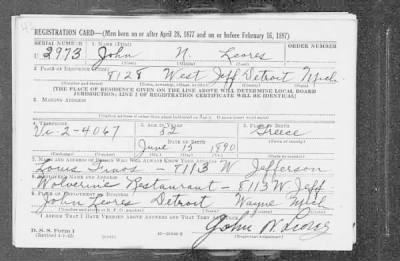 REGISTRATION CARD—(Men born on or after April 28, 1877 and on or before February 16, 1897)
SERIAL NUMBER 1. NAME (Print) ORDER NUMBER
U 2973 John N. Leores
2. PLACE OF RESIDENCE (Print)
8128 West Jeff Detroit Mich.
[THE PLACE OF RESIDENCE GIVEN ON THE LINE ABOVE WILL DETERMINE LOCAL BOARD
JURISDICTION; LINE 2 OF REGISTRATION CERTIFICATE WILL BE IDENTICAL]
3. MAILING ADDRESS
4. TELEPHONE 5. AGE IN YEARS 6. PLACE OF BIRTH
Vi-2-4067 52 Greece
DATE OF BIRTH
June 15 1890
7. NAME AND ADDRESS OF PERSON WHO WILL ALWAYS KNOW YOUR ADDRESS
Louis - 8113 W Jefferson
8. EMPLOYER'S NAME AND ADDRESS
Wolverine Restaurant - 8113 W Jeff
9. PLACE OF EMPLOYMENT OR BUSINESS
John Leores Detroit Wayne Mich
I AFFIRM THAT I HAVE VERIFIED ABOVE ANSWERS AND THAT THEY ARE TRUE.
D. S. S. Form 1
(Revised 4-1-42) (Registrant's signature)
John N Leores